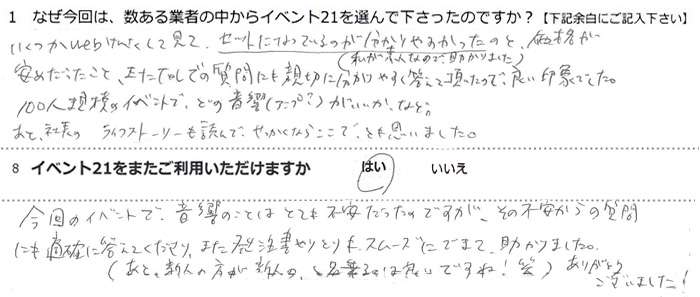 1 なぜ今回は、数ある業者の中からイベント21を選んで下さったのですか？【下記余白にご記入下さい】
いくつかwebけんさくして見て、セットになっているのが分かりやすかったのと、価格が
(私が素人なので、助かりました)
安めだったこと、またTELでの質問にも親切に分かりやすく答えて頂いたので、良い印象でした。
100人規模のイベントで、どの音響(アンプ?)がいいか、など。
あと、社長の ライフストーリーも読んで、せっかくならここで、とも思いました。
8 イベント21をまたご利用いただけますか はい いいえ
今回のイベントで、音響のことはとても不安だったのですが、その不安からの質問
にも適確に答えてくださり、また発注書やりとりも、スムーズにできて、助かりました。
(あと、新人の方が新人の、と名乗るのは良いですね!笑) ありがとう
ございました!